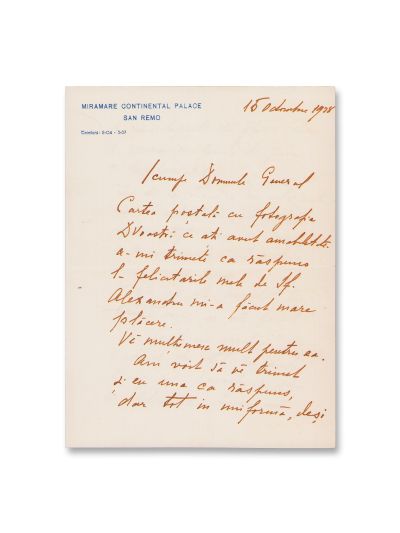 MIRAMARE CONTINENTAL PALACE
SAN REMO
15 Octombrie 1938
Scumpe Domnule General
Cartea poștală cu fotografia
DVoastră ce ați avut amabilitatea
a-mi trimete ca răspuns
la felicitările mele de Sf.
Alexandru mi-a făcut mare
plăcere.
Vă mulțumesc mult pentru ea.
Am voit să vă trimet
și eu una ca răspuns,
dar tot in uniformă, deși